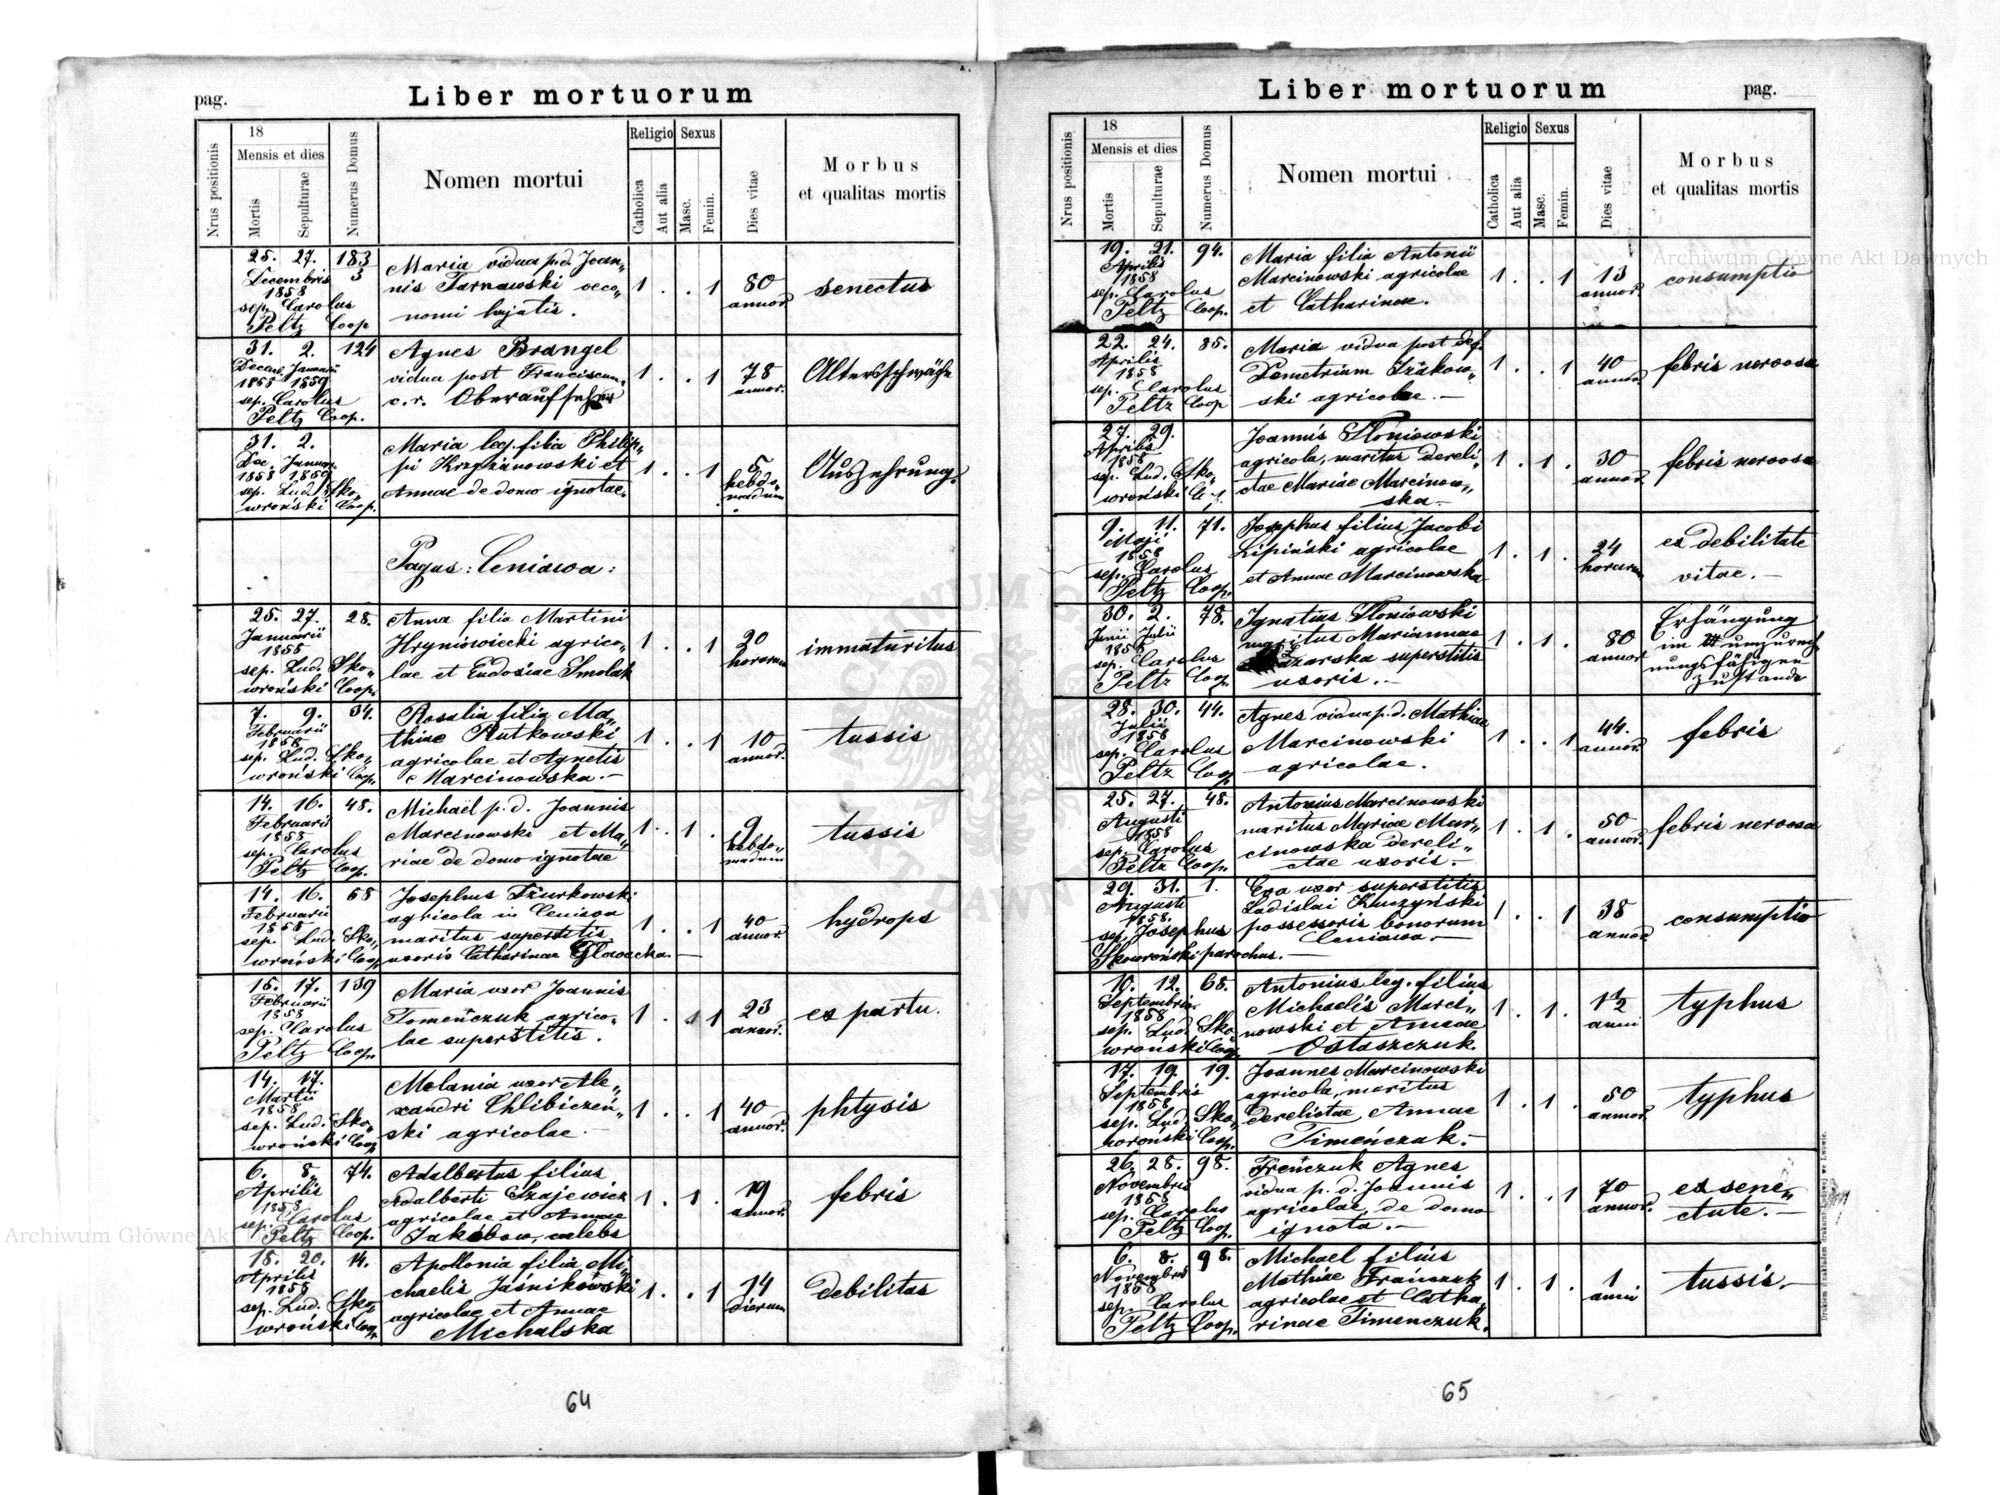 pag.
Liber mortuorum
Nrus positionis
18
Mensis et dies
Mortis
Sepulturae
Numerus Domus
Nomen mortui
Religio
Catholica
Aut alia
Sexus
Masc.
Femin.
Dies vitae
Morbus
et qualitas mortis
25. 27. 183
Decembris 3
1858
sep. Carolus
Peltz Coop
Maria vidua p.d. Joan„
nis Tarnawski oeco„
nomi hujatis.
1 . . 1
80
annor.
senectus
31. 2. 124
Decem. Januarii
1858 1859
sep. Carolus
Peltz Coop.
Agnes Brangel
vidua post Franciscum
c. r. Oberaufseher
1 . . 1
78
annor.
Altersschwäche
31. 2.
Dec. Januar.
1858 1859
sep. Lud. Sko„
wroński Coop.
Maria leg. filia Philip„
pi Krzyżanowski et
Annae de domo ignotae.
1 . . 1
5
hebdo„
madum
Auszehrung.
Pagus: Ceniawa:
25. 27. 28.
Januarii
1858
sep. Lud. Sko„
wroński Coop.
Anna filia Martini
Hryniowiecki agrico„
lae et Eudosiae Smolak
1 . . 1
20
horarum
immaturitus
7. 9. 34.
Februarii
1858
sep. Lud. Sko„
wroński Coop.
Rosalia filia Ma„
thiae Rutkowski
agricolae et Agnetis
Marcinowska.—
1 . . 1
10
annor.
tussis
14. 16. 48.
Februarii
1858
sep. Carolus
Peltz Coop.
Michaël p.d. Joannis
Marcinowski et Ma„
riae de domo ignotae
1 . 1 .
9
hebdo„
madum
tussis
14. 16. 68
Februarii
1858
sep. Lud. Sko„
wroński Coop.
Josephus Dziurkowski
agricola in Ceniawa
maritus superstitis
uxoris Catharinae Głowacka.—
1 . . 1
40
annor.
hydrops
16. 17. 139
Februarii
1858
sep. Carolus
Peltz Coop.
Maria uxor Joannis
Tomeńczuk agrico„
lae superstitis.
1 . 1 1
23
annor.
ex partu.
14. 17.
Martii
1858
sep. Lud. Sko„
wroński Coop
Melania uxor Ale„
xandri Chlibiczeń„
ski agricolae.—
1 . . 1
40
annor.
phtysis
6. 8. 74.
Aprilis
1858
sep. Carolus
Peltz Coop.
Adalbertus filius
Adalberti Szajewicz
agricolae et Annae
Jakóbow, caelebs
1 . 1 .
19
annor.
febris
18. 20. 14.
Aprilis
1858
sep. Lud. Sko„
wroński Coop.
Apollonia filia Mi„
chaelis Jaśnikowski
agricolae et Annae
Michalska
1 . . 1
14
dierum
debilitas
64
Liber mortuorum
pag.
Nrus positionis
18
Mensis et dies
Mortis
Sepulturae
Numerus Domus
Nomen mortui
Religio
Catholica
Aut alia
Sexus
Masc.
Femin.
Dies vitae
Morbus
et qualitas mortis
19. 21. 94.
Aprilis
1858
sep. Carolus
Peltz Coop.
Maria filia Antonii
Marcinowski agricolae
et Catharinae.
1 . . 1
13
annor.
consumptio
22. 24. 85.
Aprilis
1858
sep. Carolus
Peltz Coop
Maria vidua post def.
Demetrium Iżakow„
ski agricolae.—
1 . . 1
40
annor.
febris nervosa
27. 29.
Aprilis
1858
sep. Lud. Sko„
wroński
Joannis Słoniowski
agricola, maritus dereli„
ctae Mariae Marcinow„
ska—
1 . 1 .
30
annor.
febris nervosa
9. 11. 71.
Maji
1858
sep. Carolus
Peltz Coop.
Josephus filius Jacobi
Lipiński agricolae
et Annae Marcinowska
1 . 1 .
24
horarum
ex debilitate
vitae.—
30. 2. 78.
Junii Julii
1858
sep. Carolus
Peltz Coop.
Ignatius Słoniowski
maritus Mariannae
superstitis
uxoris.—
1 . 1 .
80
annor
Erhängung
im unzurech„
nungsfähigen
Zustande
28. 30. 44.
Julii
1858
sep. Carolus
Peltz Coop
Agnes vidua p.d. Mathiae
Marcinowski
agricolae.
1 . . 1
44.
annor.
febris
25. 27. 48.
Augusti
1858
sep. Carolus
Peltz Coop.
Antonius Marcinowski
maritus Mariae Mar„
cinowska dereli„
ctae uxoris.—
1 . 1 .
50
annor.
febris nervosa
29. 31. 1.
Augusti
1858.
sep. Josephus
Skowroński parochus.—
Eva uxor superstitis
Ladislai Kluczyński
possessoris bonorum
Ceniawa.—
1 . . 1
38
annor.
consumptio
10. 12. 68.
Septembris
1858
sep. Lud. Sko„
wroński Coop.
Antonius leg. filius
Michaelis Marci„
nowski et Annae
Ostaszczuk.
1 . 1 .
1½
anni
typhus
17. 19. 19.
Septembris
1858
sep. Lud. Sko„
wroński Coop.
Joannes Marcinowski
agricola, maritus
derelictae Annae
Timeńczuk.—
1 . 1 .
50
annor.
typhus
26. 28. 98.
Novembris
1858
sep. Carolus
Peltz Coop.
Freńczuk Agnes
vidua p. d. Joannis
agricolae, de domo
ignota.—
1 . . 1
70
annor.
ex sene„
ctute.—
6. 8. 98.
Novembris
1858
sep. Carolus
Peltz Coop.
Michael filius
Mathiae Frańczuk
agricolae et Catha„
rinae Timenczuk.
1 . 1 .
1
anni
tussis.—
65
Archiwum Główne Akt Dawnych
Archiwum Główne Akt Dawnych